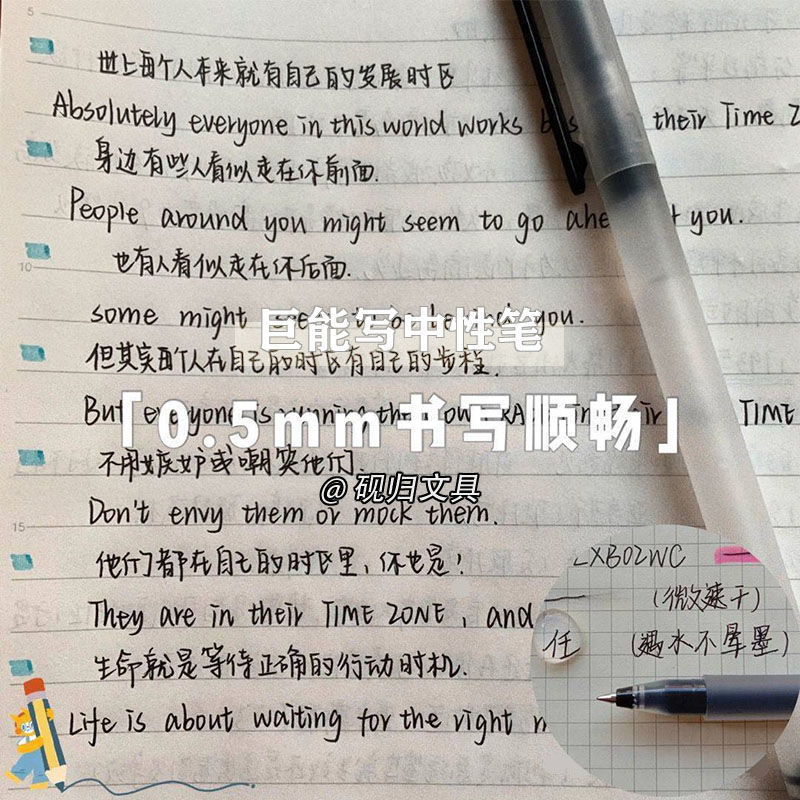 5
世上每个人本来就有自己的发展时区
Absolutely everyone in this world works their Time Z
身边有些人看似走在你前面.
People around you might seem to go ahe you.
10
也有人看似走在你后面.
some might you.
巨能写中性笔
但其实每个人在自己的时区有自己的步程.
But everyone is running their own TIME
「0.5mm书写顺畅」
不用嫉妒或嘲笑他们.
@砚归文具
Don't envy them or mock them.
15
他们都在自己的时区里,你也是!
They are in their TIME ZONE, and
生命就是等待正确的行动时机.
Life is about waiting for the right
LXB02WC
(微速干)
任
(遇水不晕墨)